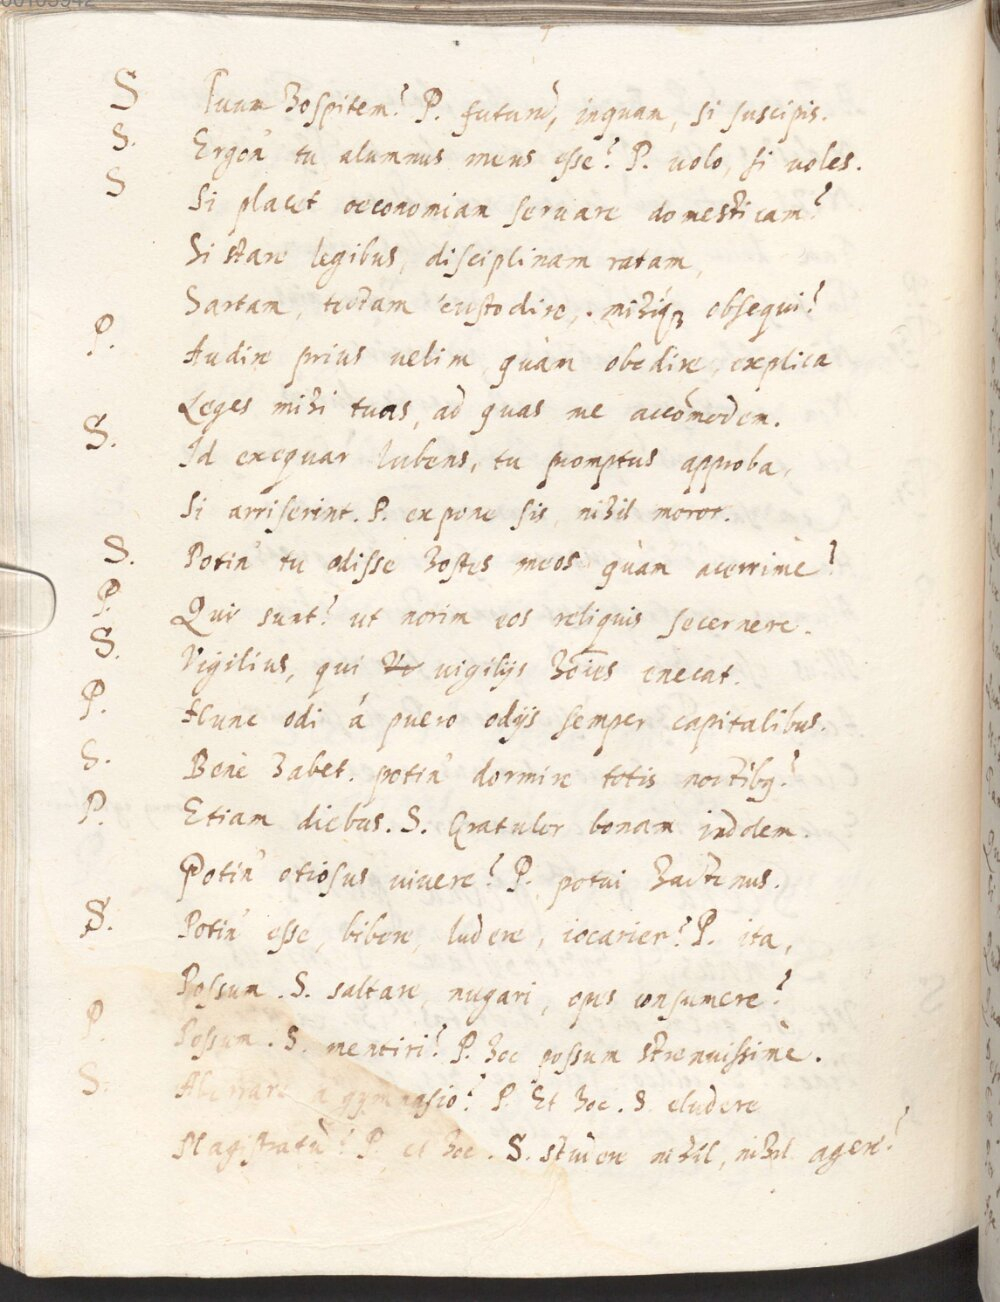 S Tuum hospitem? P. futurū, inquam, si suscipis.
S. Ergon' tu alumnus meus esse? P. uolo, si uoles.
S Si placet oeconomiam seruare domesticam?
Si stare legibus, disciplinam ratam,
Sartam, tectam custodire, mihíq3 obsequi?
P. Audire prius uelim, quàm obedire, explica
Leges mihi tuas, ad quas me accōmodem.
S. Id exequar lubens, tu promptus approba,
Si arriserint. P. expone sis, nihil moror.
S. Potin' tu odisse hostes meos quàm acerrimè?
P. Qui sunt? ut norim eos reliquis secernere.
S. Vigilius, qui vigilijs hoīes enecat.
P. Hunc odi á puero odijs semper capitalibus.
S. Benè habet. potin' dormire totis noctibq?
P. Etiam diebus. S. Gratulor bonam indolem.
Potin' otiosus uiuere? P. potui hactenus.
S. Potin' esse, bibere, ludere, iocarier? P. ita,
Possum. S. saltare, nugari, opes consumere?
P. Possum. S. mentiri? P. hoc possum strenuissimè.
S. Aberrare à gymnasio? P. Et hoc. S. eludere
Magistratū? P. et hoc. S. studere nihil, nihil agere?